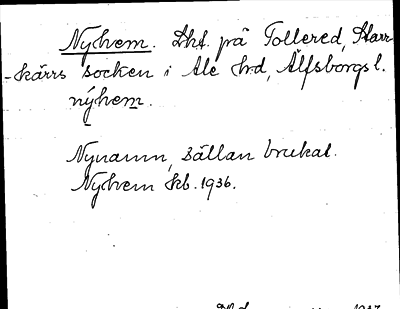 Nyhem. Lht. på Tollered, Starr-
-kärrs socken i Ale hrd, Älfsborgs l.
nýhem.
Nynamn, sällan brukat.
Nyhem kb. 1936.